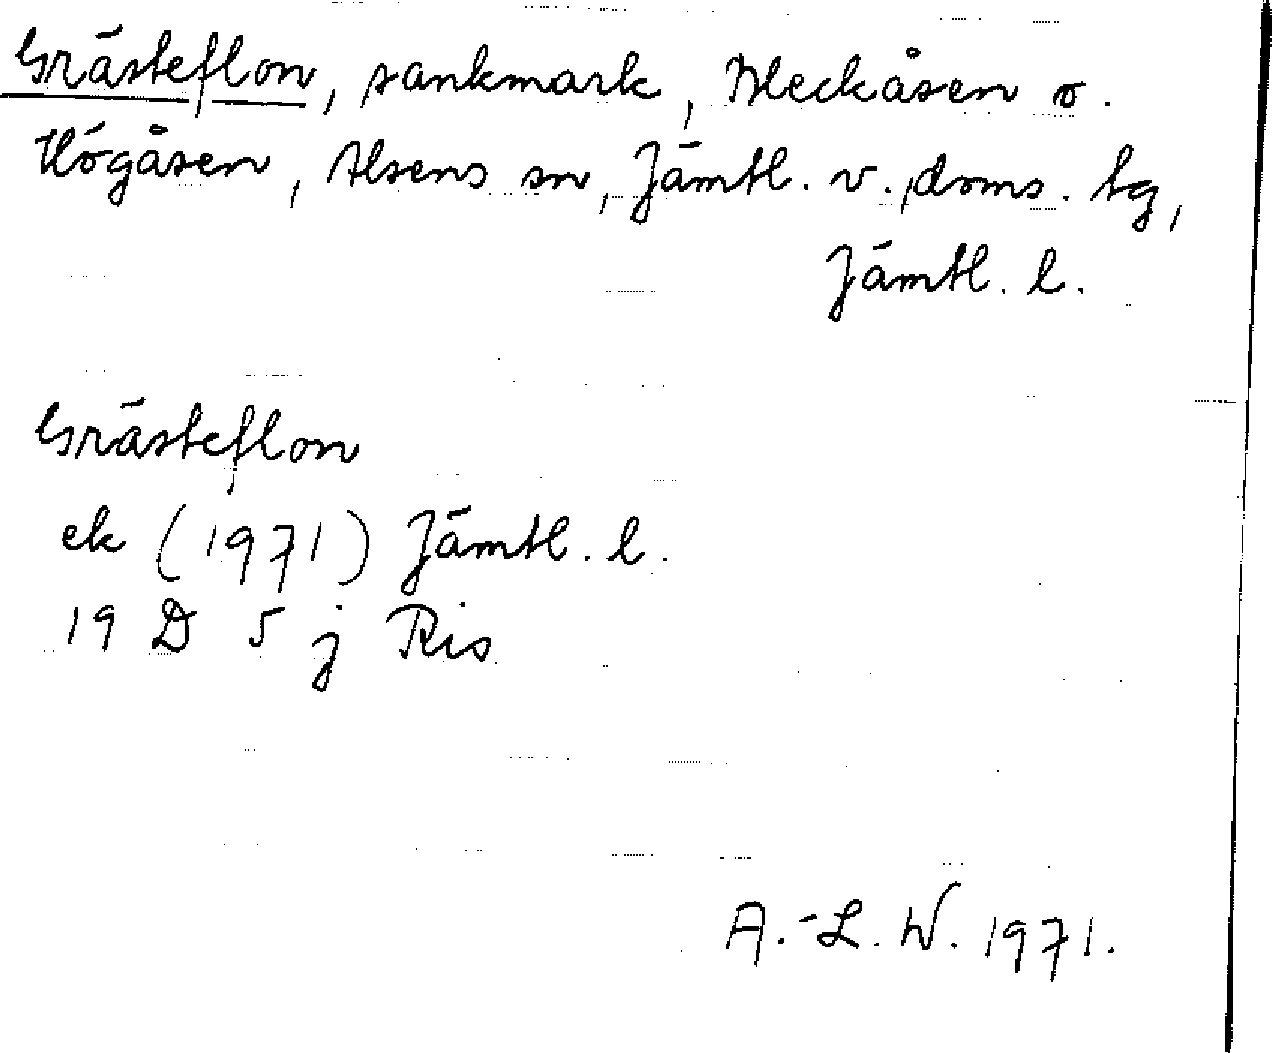 Grästeflon, sankmark, Bleckåsen o.
Högåsen, Alsens sn, Jämtl. v. doms. tg,
Jämtl. l.
Grästeflon
ek (1971) Jämtl. l.
19 D 5 j Ris
A.-L. W. 1971.